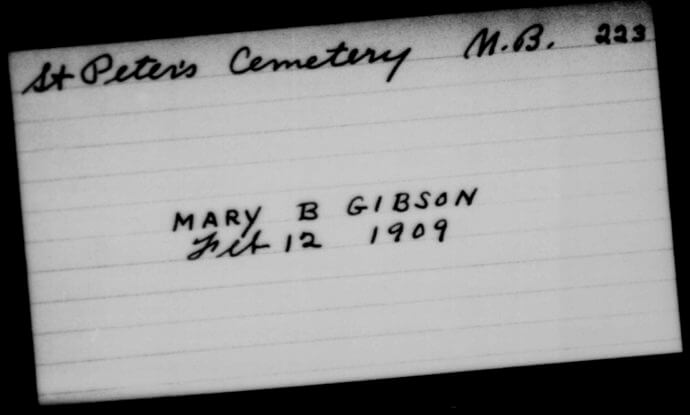 St Peter's Cemetery N.B. 223
MARY B GIBSON
Feb 12 1909